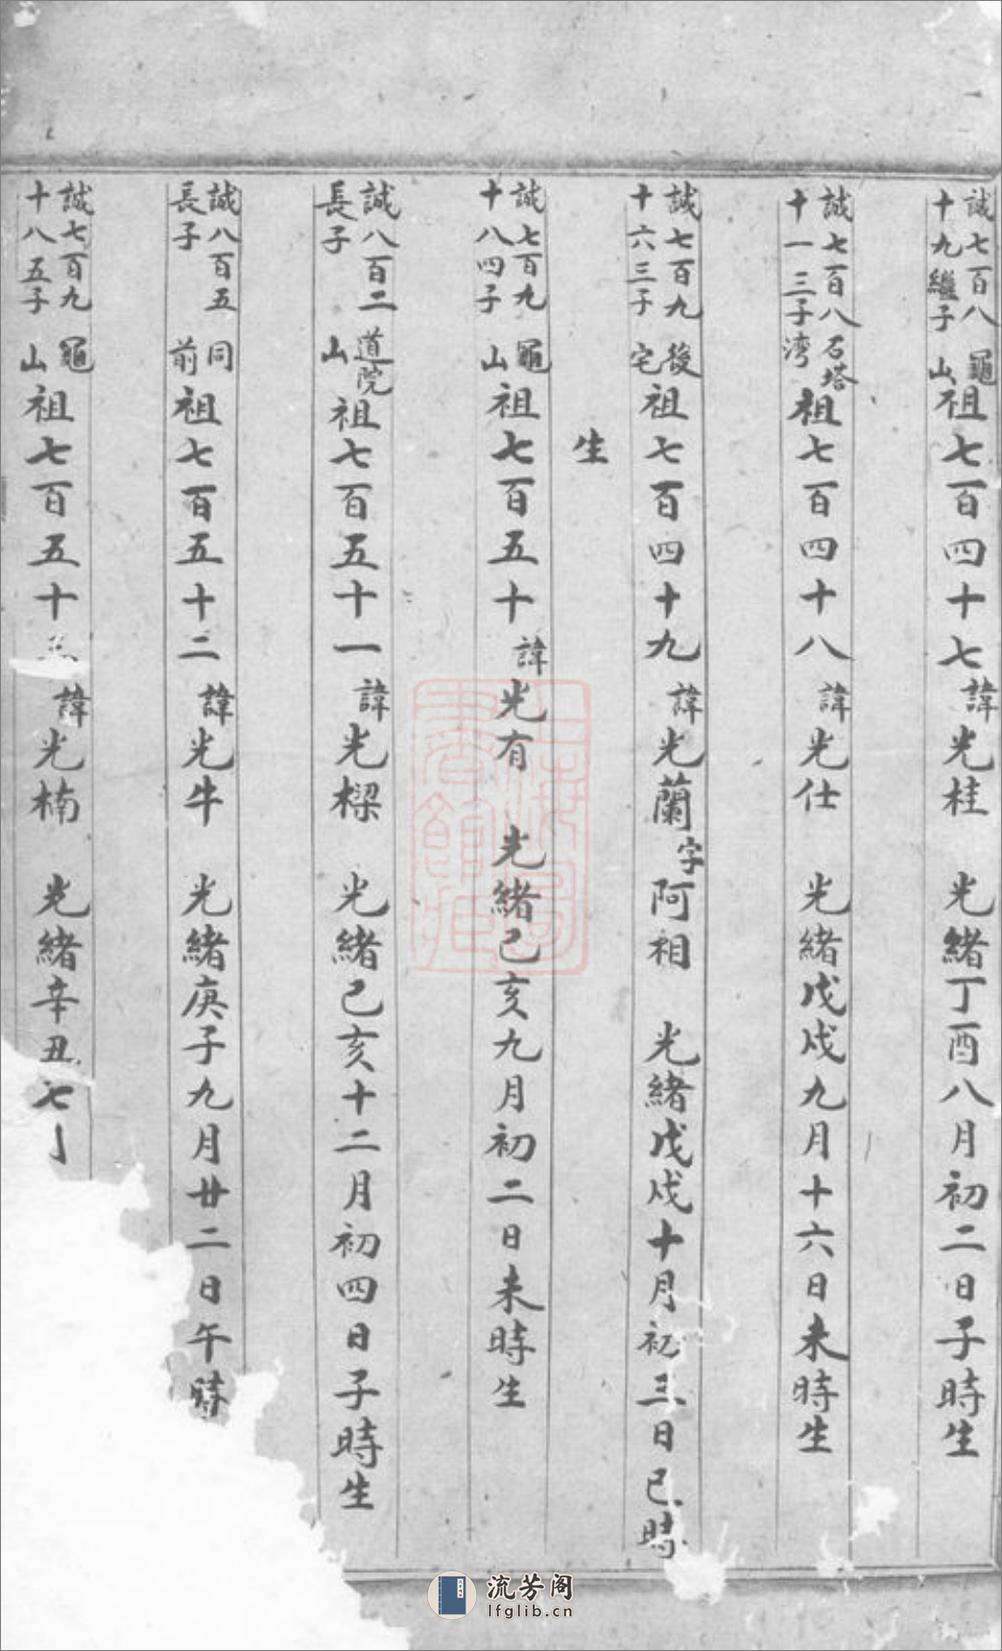 誠七百八十九繼子 龜山 祖七百四十七 諱光桂 光緒丁酉八月初二日子時生
誠七百八十一三子 石塔湾 祖七百四十八 諱光仕 光緒戊戌九月十六日未時生
誠七百九十六三子 後宅 祖七百四十九 諱光蘭 字阿相 光緒戊戌十月初三日巳時
生
誠七百九十八四子 龜山 祖七百五十 諱光有 光緒己亥九月初二日未時生
誠八百二長子 道院山 祖七百五十一 諱光樑 光緒己亥十二月初四日子時生
誠八百五長子 同前 祖七百五十二 諱光牛 光緒庚子九月廿二日午時
誠七百九十八五子 龜山 祖七百五十 諱光楠 光緒辛丑七
上海圖書館藏
流芳阁
lfglib.cn